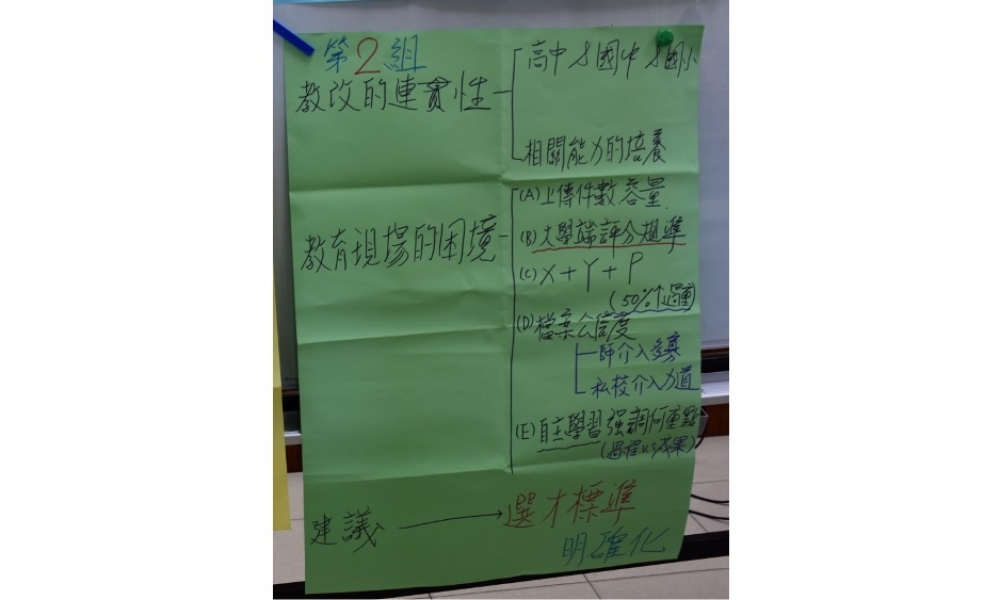 第2組
教改的連貫性
高中、國中、國小
相關能力的培養
教育現場的困境
(A)上傳件數容量
(B)大學端評分規準
(C)X+Y+P
(50%↑過重)
(D)檔案公信度
師介入多寡
私校介入力道
(E)自主學習強調何重點
(過程vs成果)
建議→選才標準
明確化